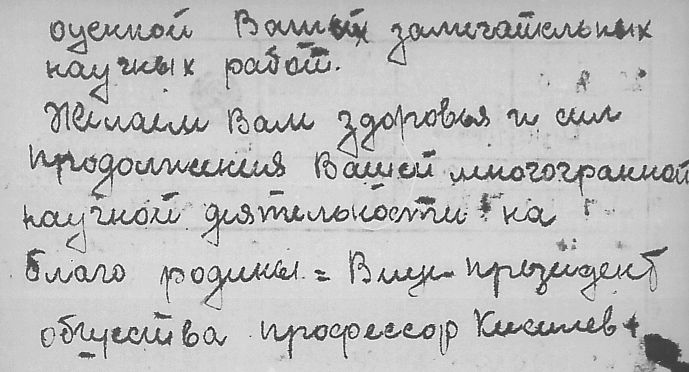 оценкой Ваших замечательных
научных работ.
Желаем Вам здоровья и сил
продолжения Вашей многогранной
научной деятельности на
благо родины = Вице-президент
общества профессор Киселев +